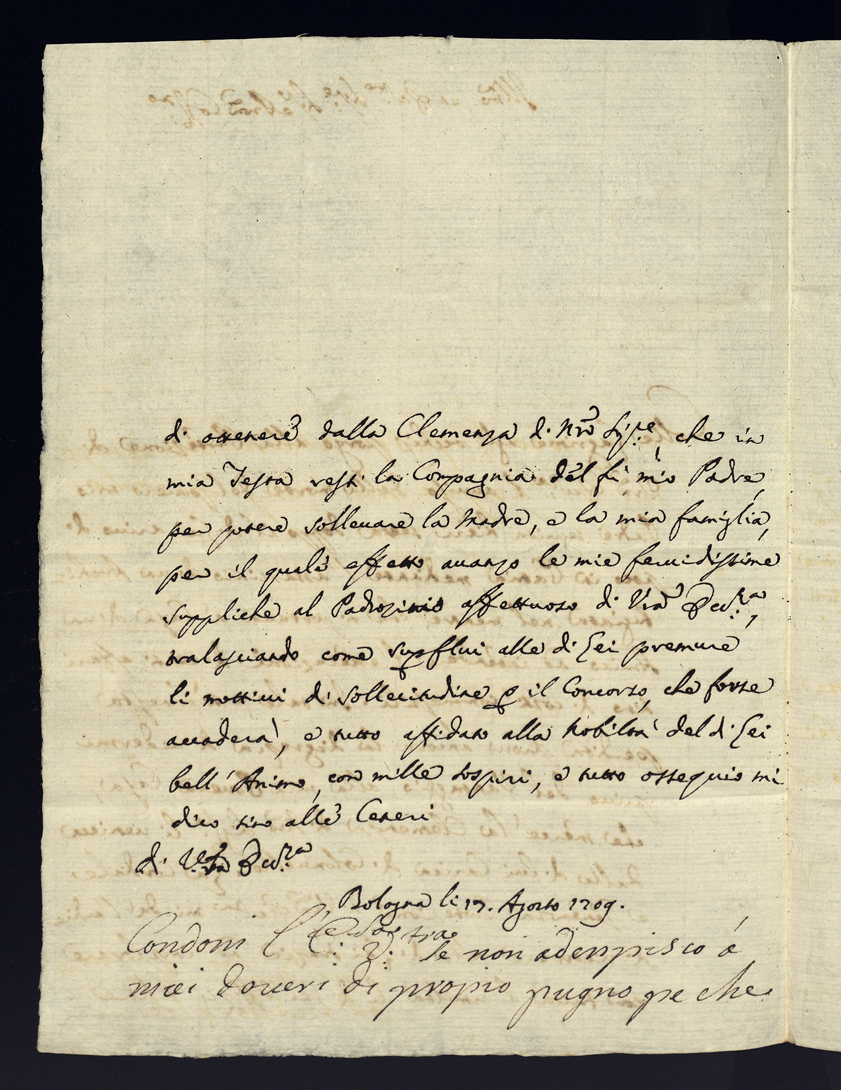 di ottenere dalla Clemenza di Nro Sig.re, che in
mia Testa resti la Compagnia del fù mio Padre,
per potere sollevare la Madre, e la mia famiglia,
per il quale effetto avanzo le mie fervidissime
suppliche al Padrozinio affettuoso di Vra Ecc.za,
tralasciando come supflui alle di Lei premure
li mottivi di sollecitudine p il Concorso, che forse
accaderà, e tutto affidato alla Nobiltà del di Lei
bell' Animo, con mille sospiri, e tutto ossequio mi
dico sino alle Ceneri
di V.ra Ecc.za
Bologna li 17. Agosto 1709.
Condoni l' V.tra se non adenpisco à
miei doveri di propio pugno pe che